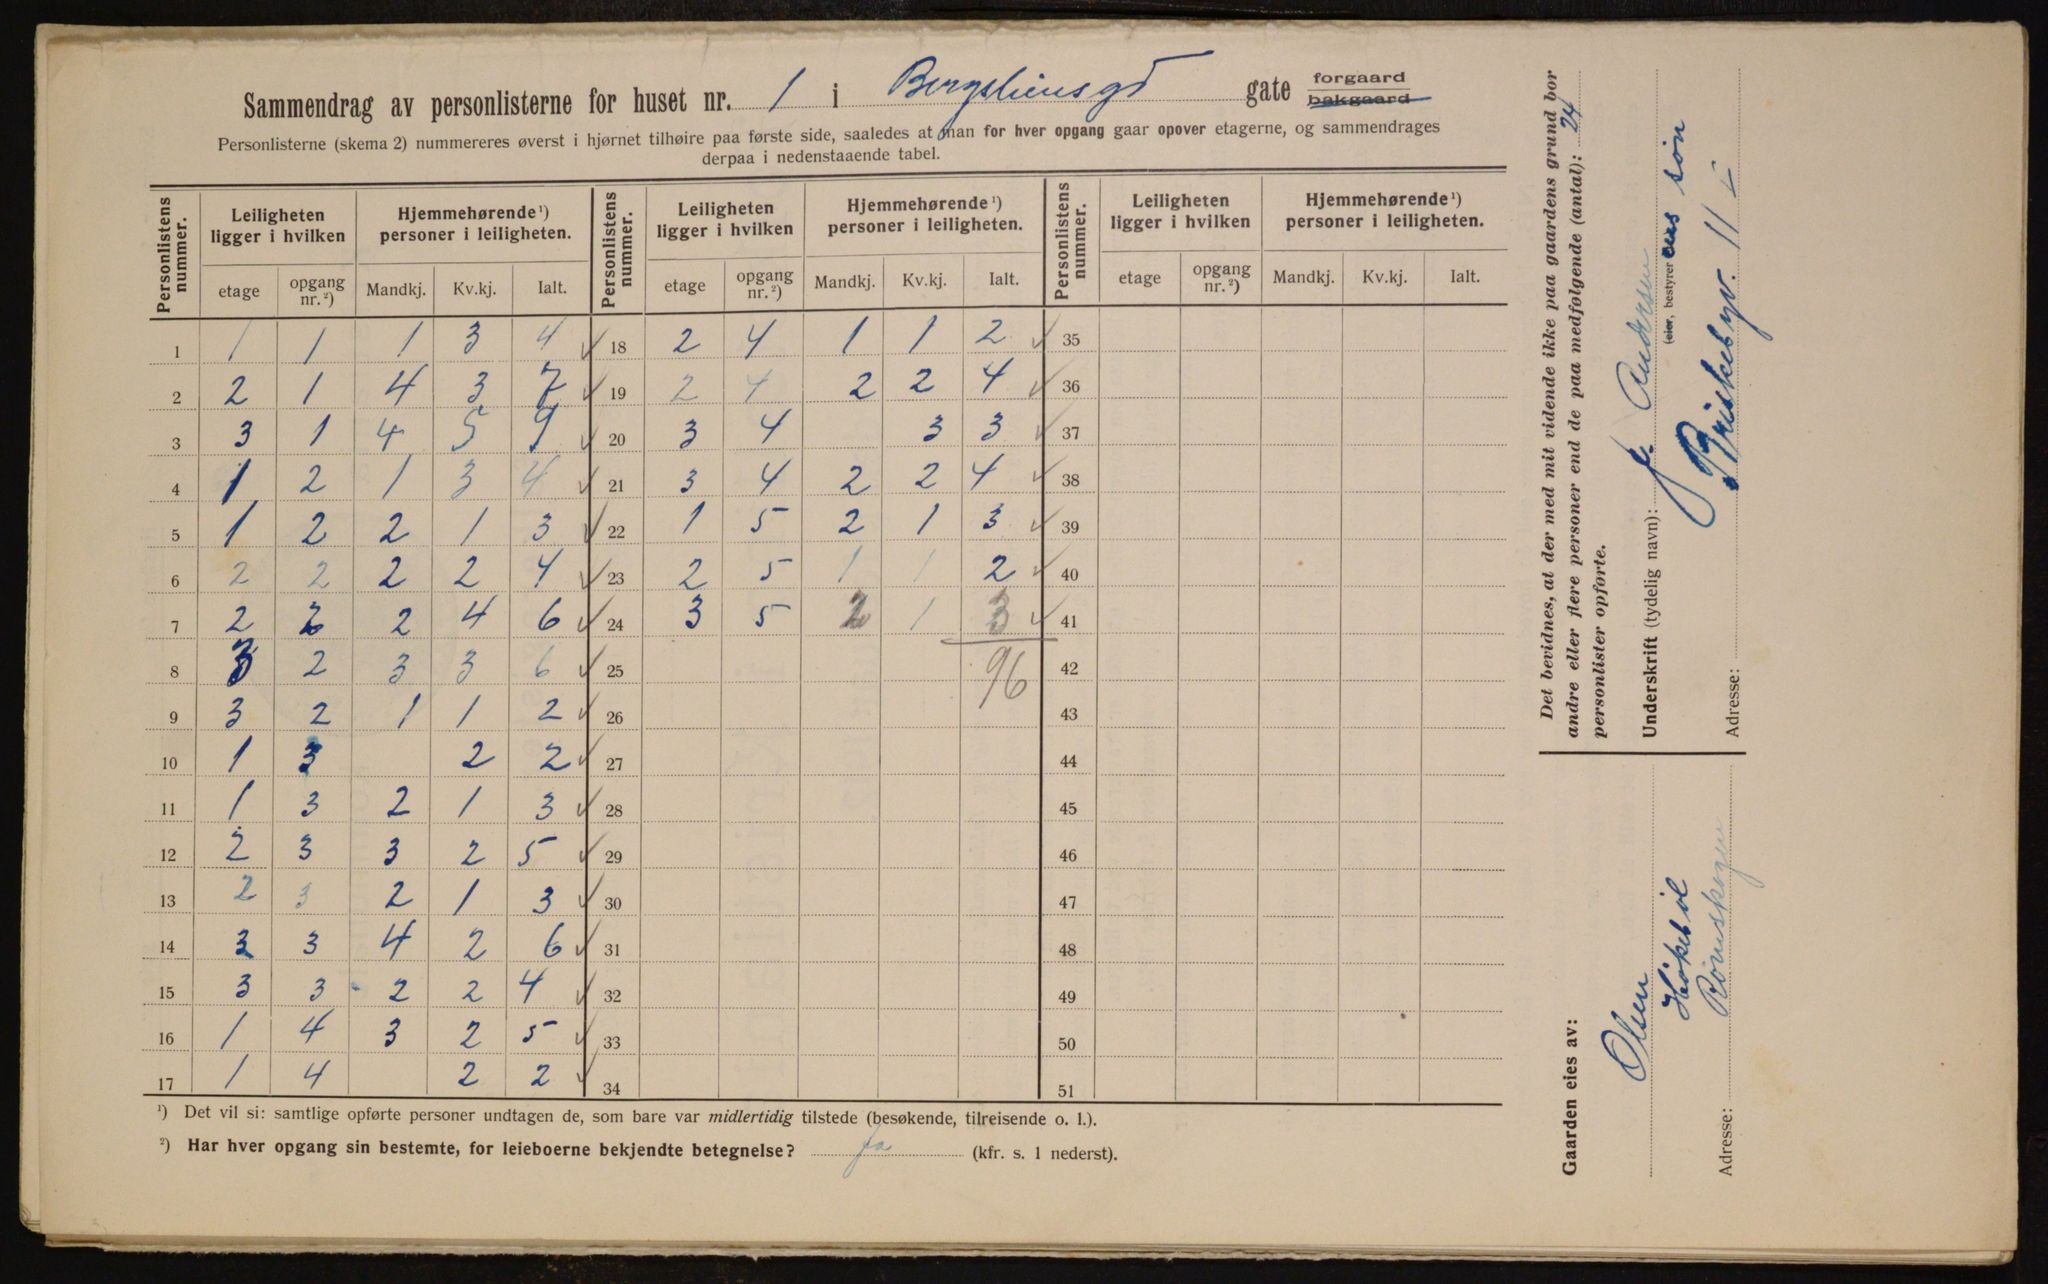 Sammendrag av personlisterne for huset nr. 1 i Bergsliensgd gate forgaard bakgaard
Personlisterne (skema 2) nummereres øverst i hjørnet tilhøire paa første side, saaledes at man for hver opgang gaar opover etagerne, og sammendrages
derpaa i nedenstaaende tabel.
Personlistens nummer. Leiligheten ligger i hvilken Hjemmehørende ¹) personer i leiligheten. Personlistens nummer. Leiligheten ligger i hvilken Hjemmehørende ¹) personer i leiligheten. Personlistens nummer. Leiligheten ligger i hvilken Hjemmehørende ¹) personer i leiligheten.
etage opgang nr. ²) Mandkj. Kv.kj. Ialt. etage opgang nr. ²) Mandkj. Kv.kj. Ialt. etage opgang nr. ²) Mandkj. Kv.kj. Ialt.
1 1 1 1 3 4 ✓ 18 2 4 1 1 2 ✓ 35
2 2 1 4 3 7 ✓ 19 2 4 2 2 4 ✓ 36
3 3 1 4 5 9 ✓ 20 3 4 3 3 ✓ 37
4 1 2 1 3 4 ✓ 21 3 4 2 2 4 ✓ 38
5 1 2 2 1 3 ✓ 22 1 5 2 1 3 ✓ 39
6 2 2 2 2 4 ✓ 23 2 5 1 1 2 ✓ 40
7 2 2 2 4 6 ✓ 24 3 5 2 1 3 ✓ 41
8 3 2 3 3 6 ✓ 25 96 42
9 3 2 1 1 2 ✓ 26 43
10 1 3 2 2 ✓ 27 44
11 1 3 2 1 3 ✓ 28 45
12 2 3 3 2 5 ✓ 29 46
13 2 3 2 1 3 ✓ 30 47
14 3 3 4 2 6 ✓ 31 48
15 3 3 2 2 4 ✓ 32 49
16 1 4 3 2 5 ✓ 33 50
17 1 4 2 2 ✓ 34 51
¹) Det vil si: samtlige opførte personer undtagen de, som bare var midlertidig tilstede (besøkende, tilreisende o. l.).
²) Har hver opgang sin bestemte, for leieboerne bekjendte betegnelse? ja (kfr. s. 1 nederst).
Det bevidnes, at der med mit vidende ikke paa gaardens grund bor
andre eller flere personer end de paa medfølgende (antal): 24
personlister opførte.
Underskrift (tydelig navn): J. Andersen
(eier, bestyrer søn
Adresse: Briskebyv. 11 I
Gaarden eies av:
Olsen
Adresse: